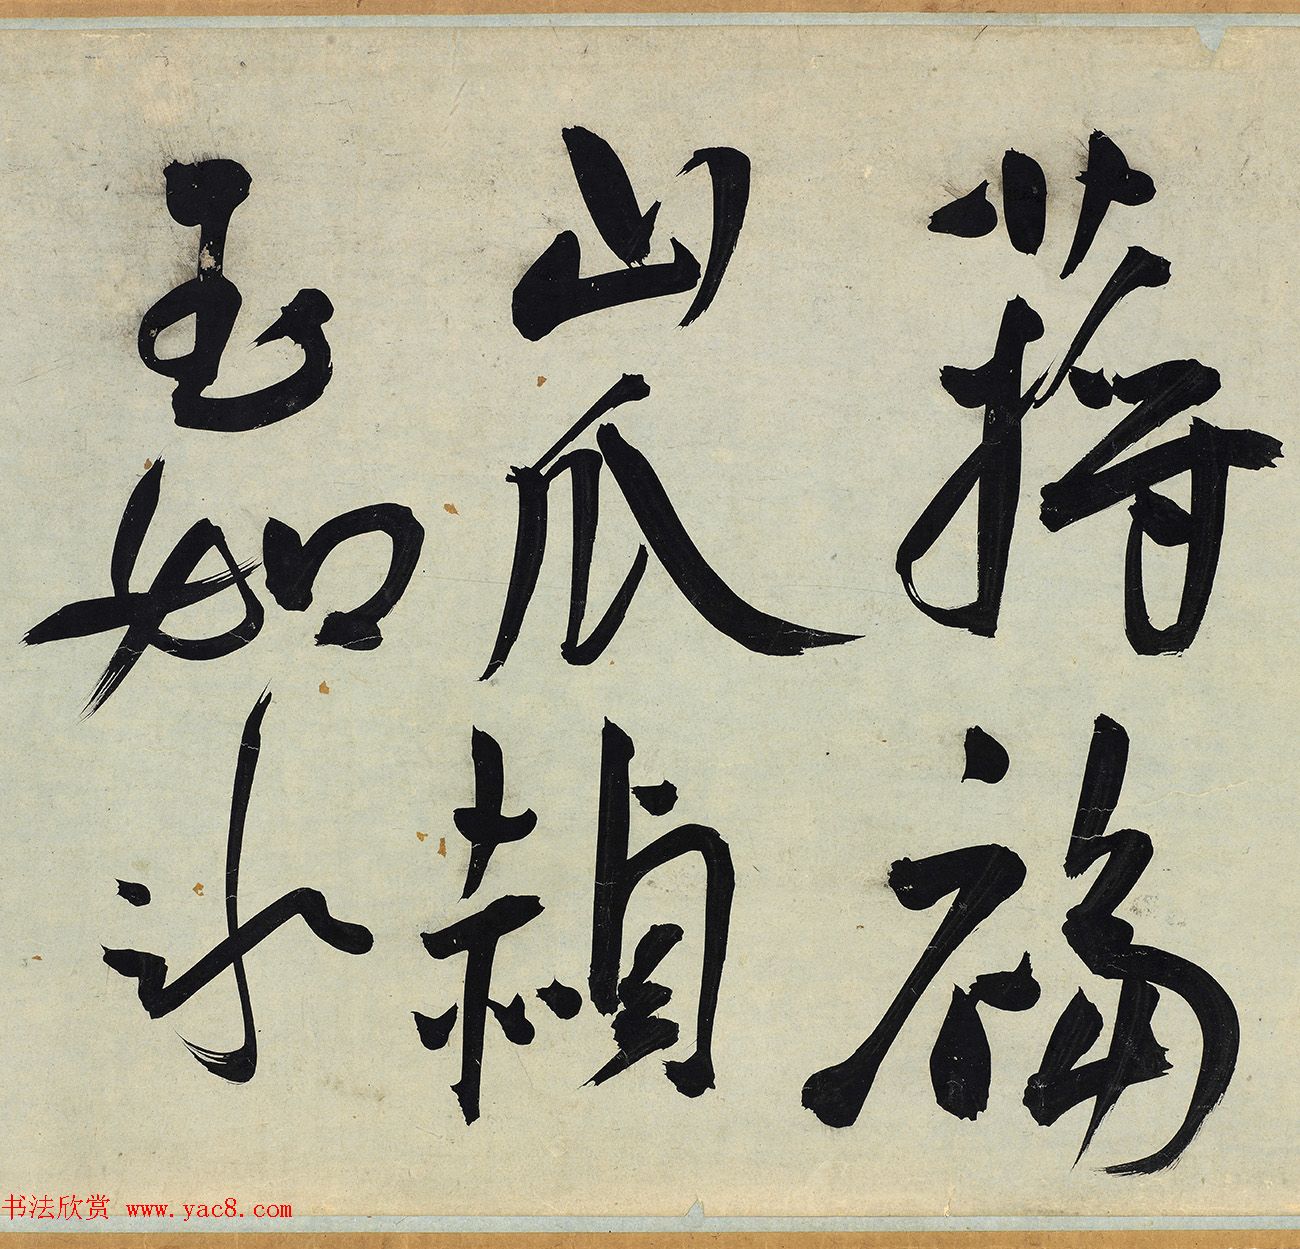 福
山瓜
玉如冰
书法欣赏 www.yac8.com